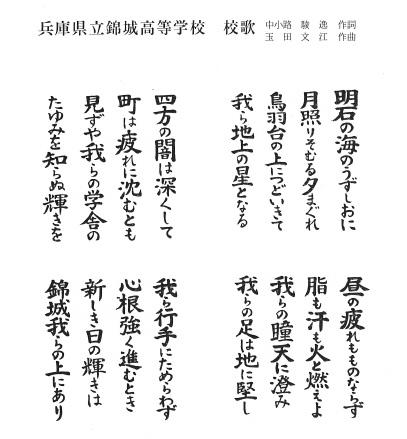 兵庫県立錦城高等学校　校歌
中小路　駿　逸　作詞
玉　田　文　江　作曲
明石の海のうずしおに
月照りそむる夕まぐれ
鳥羽台の上につどいきて
我ら地上の星となる
四方の闇は深くして
町は疲れに沈むとも
見ずや我らの学舎の
たゆみを知らぬ輝きを
昼の疲れもものならず
脂も汗も火と燃えよ
我らの瞳天に澄み
我らの足は地に堅し
我ら行手にためらわず
心根強く進むとき
新しき日の輝きは
錦城我らの上にあり